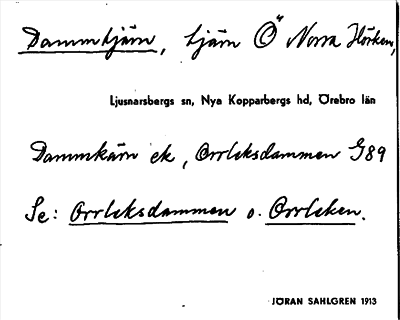 Dammtjärn, tjärn Ö Norra Hörken,
Ljusnarsbergs sn, Nya Kopparbergs hd, Örebro län
Dammkärn ek, Orrleksdammen G89
Se: Orrleksdammen o. Orrleken.
JÖRAN SAHLGREN 1913